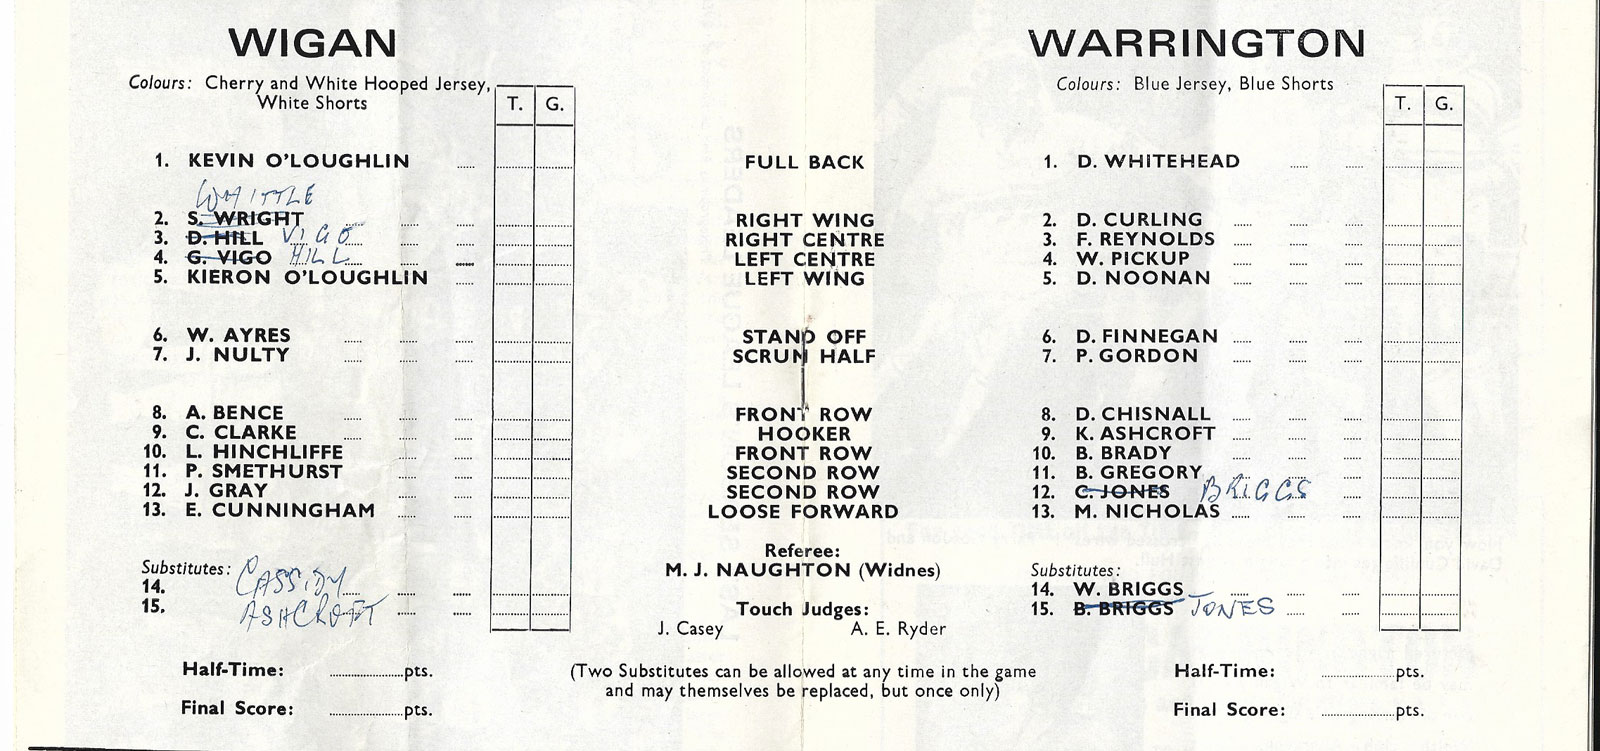 WIGAN
Colours: Cherry and White Hooped Jersey,
White Shorts
T. G.
1. KEVIN O'LOUGHLIN
WHITTLE
2. S. WRIGHT
3. D. HILL VIGO
4. G. VIGO HILL
5. KIERON O'LOUGHLIN
6. W. AYRES
7. J. NULTY
8. A. BENCE
9. C. CLARKE
10. L. HINCHLIFFE
11. P. SMETHURST
12. J. GRAY
13. E. CUNNINGHAM
Substitutes: CASSIDY
14.
15. ASHCROFT
Half-Time: ....................pts.
Final Score: ....................pts.
FULL BACK
RIGHT WING
RIGHT CENTRE
LEFT CENTRE
LEFT WING
STAND OFF
SCRUM HALF
FRONT ROW
HOOKER
FRONT ROW
SECOND ROW
SECOND ROW
LOOSE FORWARD
Referee:
M. J. NAUGHTON (Widnes)
Touch Judges:
J. Casey A. E. Ryder
(Two Substitutes can be allowed at any time in the game
and may themselves be replaced, but once only)
WARRINGTON
Colours: Blue Jersey, Blue Shorts
T. G.
1. D. WHITEHEAD
2. D. CURLING
3. F. REYNOLDS
4. W. PICKUP
5. D. NOONAN
6. D. FINNEGAN
7. P. GORDON
8. D. CHISNALL
9. K. ASHCROFT
10. B. BRADY
11. B. GREGORY
12. C. JONES BRIGGS
13. M. NICHOLAS
Substitutes:
14. W. BRIGGS
15. B. BRIGGS JONES
Half-Time: ....................pts.
Final Score: ....................pts.